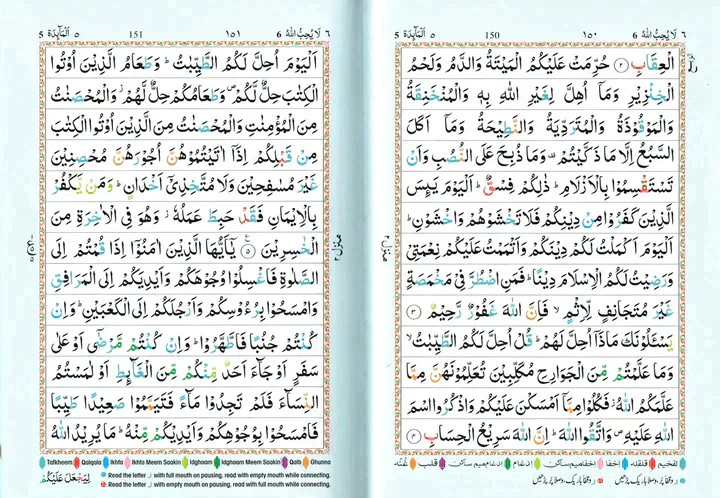 لَا يُحِبُّ اللهُ ٦ 6 ١٥٠ 150 اَلْمَآئِدَة ٥ 5
الْعِقَابِ ﴿٢﴾ حُرِّمَتْ عَلَيْكُمُ الْمَيْتَةُ وَالدَّمُ وَلَحْمُ
الْخِنْزِيْرِ وَمَاۤ اُهِلَّ لِغَيْرِ اللهِ بِهٖ وَالْمُنْخَنِقَةُ
وَالْمَوْقُوْذَةُ وَالْمُتَرَدِّيَةُ وَالنَّطِيْحَةُ وَمَاۤ اَكَلَ
السَّبُعُ اِلَّا مَا ذَكَّيْتُمْ ۫ وَمَا ذُبِحَ عَلَى النُّصُبِ وَاَنْ
تَسْتَقْسِمُوْا بِالْاَزْلَامِ ؕ ذٰلِكُمْ فِسْقٌ ؕ اَلْيَوْمَ يَىِٕسَ
الَّذِيْنَ كَفَرُوْا مِنْ دِيْنِكُمْ فَلَا تَخْشَوْهُمْ وَاخْشَوْنِ ؕ
اَلْيَوْمَ اَكْمَلْتُ لَكُمْ دِيْنَكُمْ وَاَتْمَمْتُ عَلَيْكُمْ نِعْمَتِيْ
وَرَضِيْتُ لَكُمُ الْاِسْلَامَ دِيْنًا ؕ فَمَنِ اضْطُرَّ فِيْ مَخْمَصَةٍ
غَيْرَ مُتَجَانِفٍ لِّاِثْمٍ ۙ فَاِنَّ اللهَ غَفُوْرٌ رَّحِيْمٌ ﴿٣﴾
يَسْـَٔلُوْنَكَ مَاذَاۤ اُحِلَّ لَهُمْ ؕ قُلْ اُحِلَّ لَكُمُ الطَّيِّبٰتُ ۙ
وَمَا عَلَّمْتُمْ مِّنَ الْجَوَارِحِ مُكَلِّبِيْنَ تُعَلِّمُوْنَهُنَّ مِمَّا
عَلَّمَكُمُ اللهُ ؗ فَكُلُوْا مِمَّاۤ اَمْسَكْنَ عَلَيْكُمْ وَاذْكُرُوا اسْمَ
اللهِ عَلَيْهِ ۪ وَاتَّقُوا اللهَ ؕ اِنَّ اللهَ سَرِيْعُ الْحِسَابِ ﴿٤﴾
منزل ٢
تفخيم قلقله اخفا اخفا ميم ساكن ادغام ادغام ميم ساكن قلب غنّه
لَا يُحِبُّ اللهُ ٦ 6 ١٥١ 151 اَلْمَآئِدَة ٥ 5
اَلْيَوْمَ اُحِلَّ لَكُمُ الطَّيِّبٰتُ ؕ وَطَعَامُ الَّذِيْنَ اُوْتُوا
الْكِتٰبَ حِلٌّ لَّكُمْ ۪ وَطَعَامُكُمْ حِلٌّ لَّهُمْ ؗ وَالْمُحْصَنٰتُ
مِنَ الْمُؤْمِنٰتِ وَالْمُحْصَنٰتُ مِنَ الَّذِيْنَ اُوْتُوا الْكِتٰبَ
مِنْ قَبْلِكُمْ اِذَاۤ اٰتَيْتُمُوْهُنَّ اُجُوْرَهُنَّ مُحْصِنِيْنَ
غَيْرَ مُسٰفِحِيْنَ وَلَا مُتَّخِذِيْۤ اَخْدَانٍ ؕ وَمَنْ يَّكْفُرْ
بِالْاِيْمَانِ فَقَدْ حَبِطَ عَمَلُهٗ ؗ وَهُوَ فِي الْاٰخِرَةِ مِنَ
الْخٰسِرِيْنَ ﴿٥﴾ يٰۤاَيُّهَا الَّذِيْنَ اٰمَنُوْۤا اِذَا قُمْتُمْ اِلَى
الصَّلٰوةِ فَاغْسِلُوْا وُجُوْهَكُمْ وَاَيْدِيَكُمْ اِلَى الْمَرَافِقِ
وَامْسَحُوْا بِرُءُوْسِكُمْ وَاَرْجُلَكُمْ اِلَى الْكَعْبَيْنِ ؕ وَاِنْ
كُنْتُمْ جُنُبًا فَاطَّهَّرُوْا ؕ وَاِنْ كُنْتُمْ مَّرْضٰۤى اَوْ عَلٰى
سَفَرٍ اَوْ جَآءَ اَحَدٌ مِّنْكُمْ مِّنَ الْغَآئِطِ اَوْ لٰمَسْتُمُ
النِّسَآءَ فَلَمْ تَجِدُوْا مَآءً فَتَيَمَّمُوْا صَعِيْدًا طَيِّبًا
فَامْسَحُوْا بِوُجُوْهِكُمْ وَاَيْدِيْكُمْ مِّنْهُ ؕ مَا يُرِيْدُ اللهُ
منزل ٢
Tafkheem Qalqala Ikhfa Ikhfa Meem Saakin Idghaam Idghaam Meem Saakin Qalb Ghunna
Read the letter ر with full mouth on pausing, read with empty mouth while connecting.
Read the letter ر with empty mouth on pausing, read with full mouth while connecting.
لِيَجْعَلَ عَلَيْكُمْ